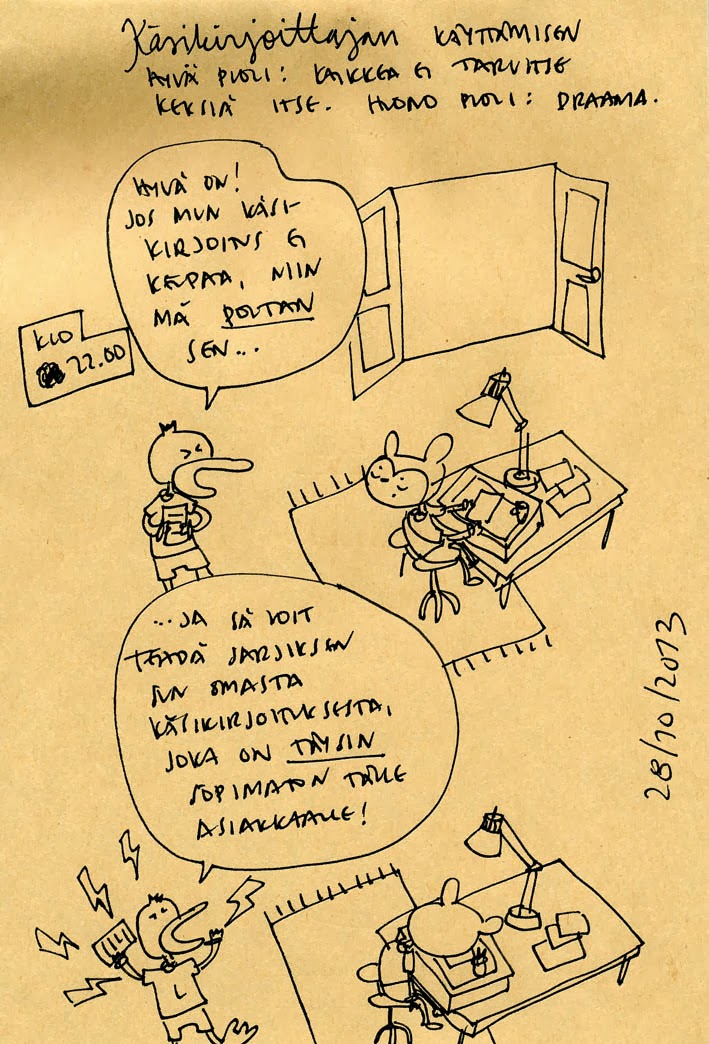 Käsikirjoittajan KÄYTTÄMISEN
HYVÄ PUOLI: KAIKKEA EI TARVITSE
KEKSIÄ ITSE. HUONO PUOLI: DRAAMA.
HYVÄ ON!
JOS MUN KÄSI-
KIRJOITUS EI
KELPAA, NIIN
MÄ POLTAN
SEN...
KLO
22.00
...JA SÄ VOIT
TEHDÄ SARJIKSEN
SUN OMASTA
KÄSIKIRJOITUKSESTA,
JOKA ON TÄYSIN
SOPIMATON TÄLLE
ASIAKKAALLE!
28/10/2013
L